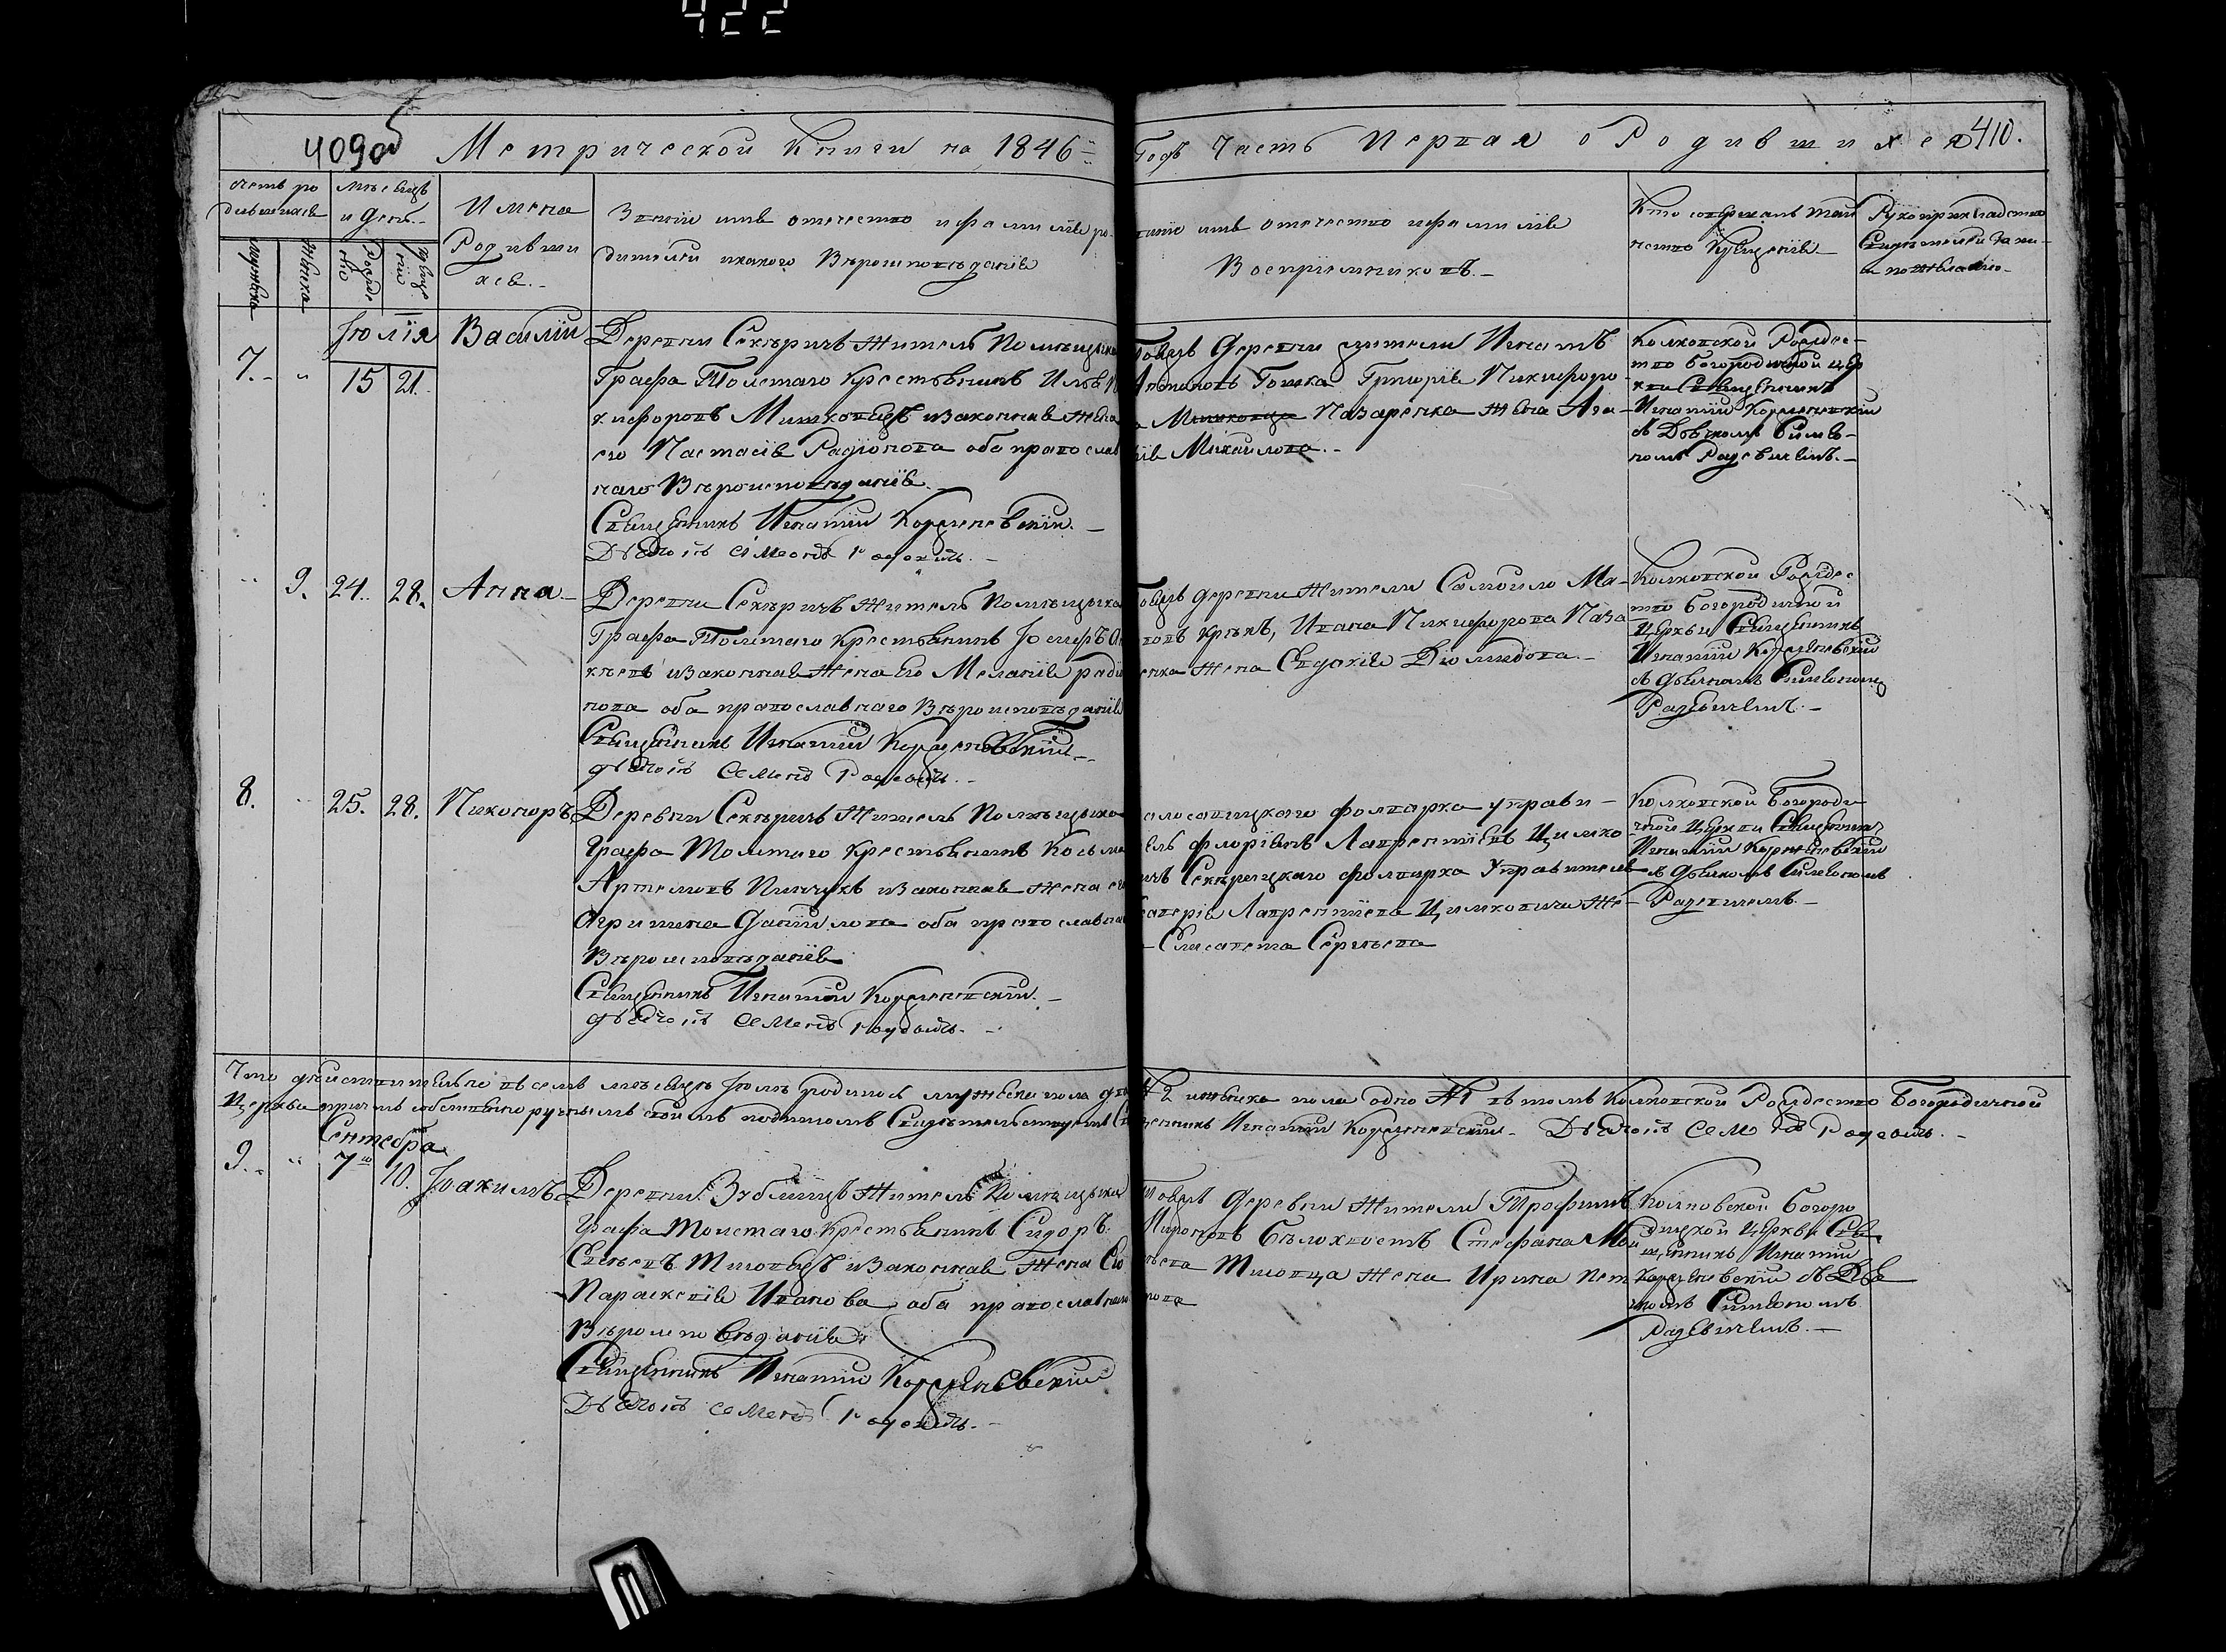 422
409об Метрической Книги на 1846й
Годъ Часть Первая о Родившихся 410.
счетъ ро
дившихся
мужеска
женска
месяцъ
и день
Рожде
нія
Креще
нія
Имена
Родивши
хся.
Званіе имя отечество и фамилія ро-
дителей и какого Вероисповеданія
Званіе имя отечество и фамилія
Воспріемниковъ.
Кто совершалъ таин
ство Крещенія
Рукоприкладство
Свидетелей запи-
си по желанію
Іюлія
7. " 15 21. Василій
Деревни Секѣричъ житель Помѣщика
Графа Толстаго Крестьянинъ Илья Ни
кифоровъ Мишковецъ и законная жена
его Настасія Радіонова оба православ
наго Вѣроисповѣданія
Священникъ Игнатій Корженевскій.
Дьячокъ Семеонъ Радевичъ.
Товяжъ деревни жители Игнатъ
Антоновъ Гошка Григорія Никифоро
а Мишковца Назаренка жена Ага-
фія Михайлова.
Колковской Рождес-
тво Богородичной цер
кви Священникъ
Игнатій Корженевскій
съ Дьячкомъ Симео-
номъ Радевичемъ.
" 9. 24. 28. Анна
Деревни Секѣричъ житель Помѣщика
Графа Толстаго Крестьянинъ Іосифъ
и законная жена Его Меланія Радіо
нова оба православнаго Вѣроисповѣданія
Священникъ Игнатій Корженевскій
дьячокъ Семенъ Радевичъ.
товяжъ деревни жители Самойло Ма-
Ивана Никифорова Наза
ренка жена Евдокія Діомидова.
Колковской Рождес
тво Богородичной
Церкви Священникъ
Игнатій Корженевскій
съ дьячкомъ Симеономъ
Радевичемъ.
8. " 25. 28. Никоноръ
Деревни Секѣричъ житель Помѣщика
Графа Толстаго Крестьянинъ Косьма
Артемовъ Пинчукъ и законная жена его
Агрипина Даніилова оба православнаго
Вѣроисповѣданія
Священникъ Игнатій Корженевскій.
дьячокъ Семенъ Радевичъ.
фолварка управи-
тель Флоріянъ Лаврентіевъ Цимко
вичъ Секѣрицкаго фолварка Управителя
Лаврентіева Цимковича же-
на Елисавета Сергѣева
Колковской Богороди
чной Церкви Священникъ
Игнатій Корженевскій
съ дьячкомъ Симеономъ
Радевичемъ.
Что дѣйствительно въ семъ месяцѣ Іюлѣ родилось мужеска пола два № 2 и женска пола одно № 1 въ томъ Колковской Рождество Богородичной
Церкви причтъ собственноручнымъ своимъ подписомъ Свидѣтельствуетъ Священникъ Игнатій Корженевскій. Дьячокъ Семенъ Радевичъ.
Сентебра
9. " 7го 10. Іоакимъ
Деревни житель Помѣщика
Графа Толстаго Крестьянинъ Сидоръ
и законная жена Его
Параскевія Иванова оба православнаго
Вѣроисповѣданія
Священникъ Игнатій Корженевскій
Дьячокъ Семенъ Радевичъ.
Товяжъ деревни жители Трофимъ
Мироновъ Бѣлохвостъ Стефана Мои
сѣева жена Ирина Пет
рова
Колковской Богоро
дицкой Церкви Свя
щенникъ Игнатій
Корженевскій съ Дья
чкомъ Симеономъ
Радевичемъ.